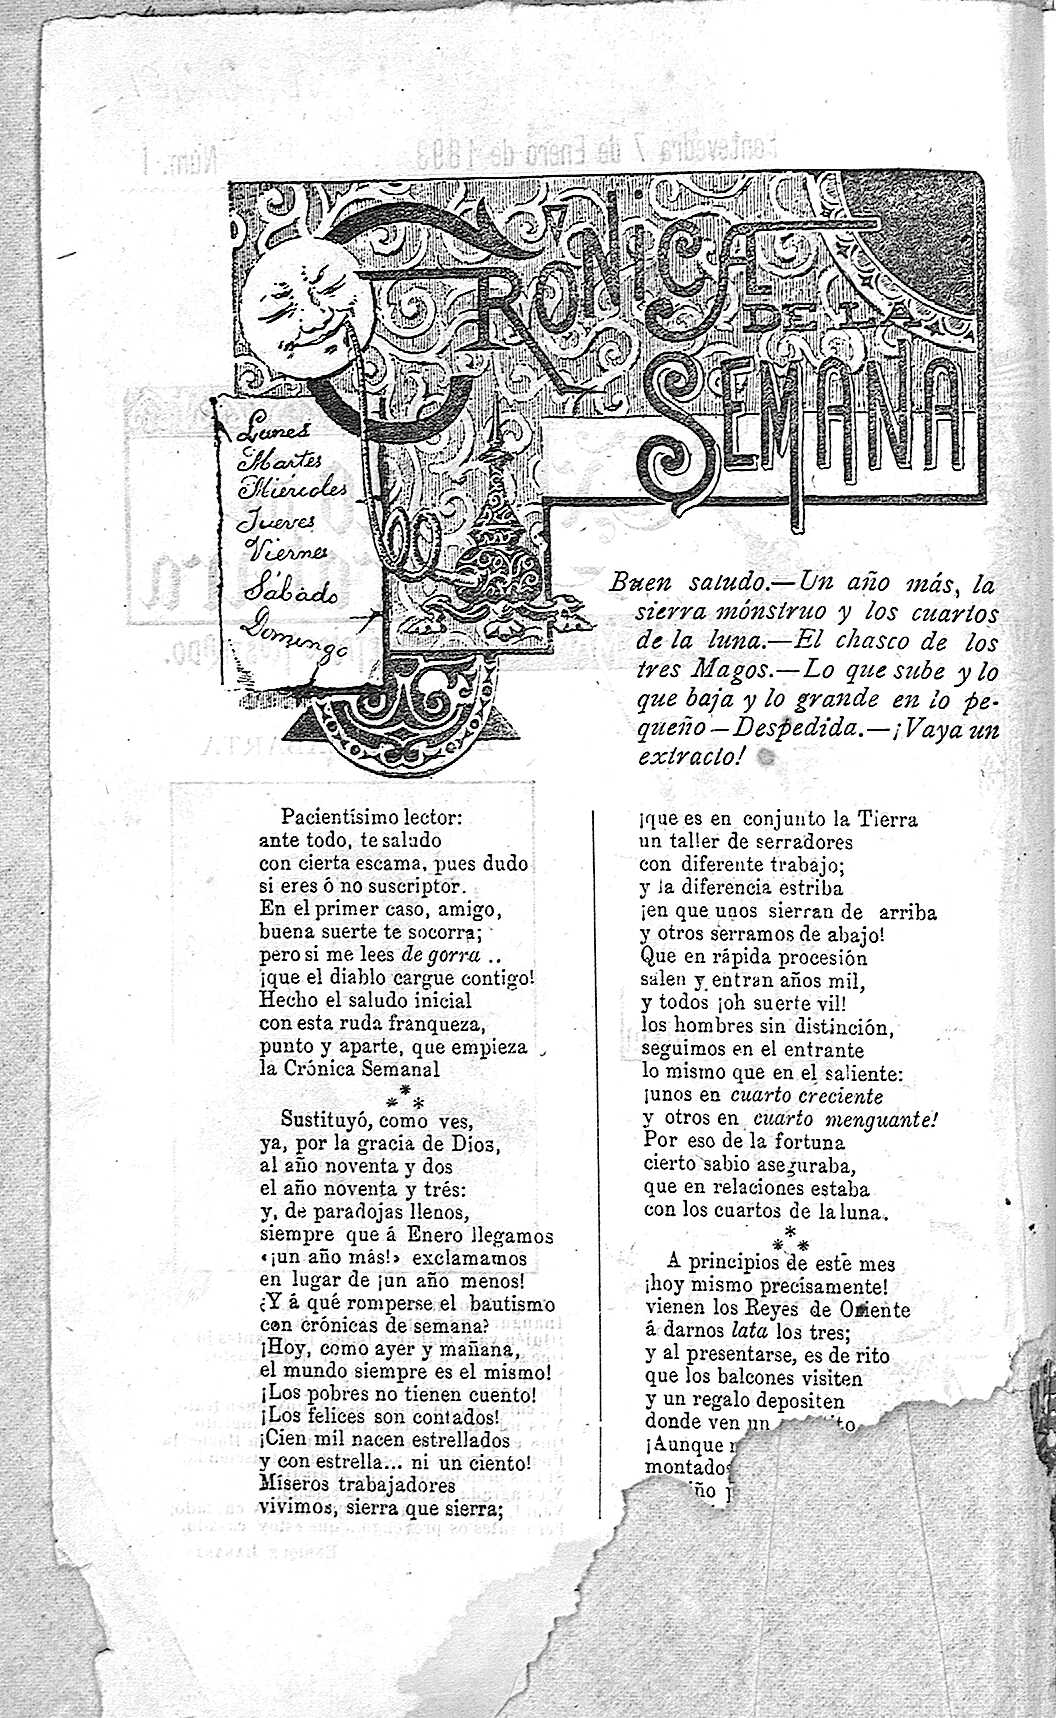 CRÓNICA
DE LA
SEMANA
Lunes
Martes
Miércoles
Jueves
Viernes
Sábado
Domingo
Buen saludo.—Un año más, la
sierra mónstruo y los cuartos
de la luna.—El chasco de los
tres Magos.—Lo que sube y lo
que baja y lo grande en lo pe-
queño—Despedida.—¡Vaya un
extracto!
Pacientísimo lector:
ante todo, te saludo
con cierta escama, pues dudo
si eres ó no suscriptor.
En el primer caso, amigo,
buena suerte te socorra;
pero si me lees de gorra ..
¡que el diablo cargue contigo!
Hecho el saludo inicial
con esta ruda franqueza,
punto y aparte, que empieza
la Crónica Semanal
* * *
Sustituyó, como ves,
ya, por la gracia de Dios,
al año noventa y dos
el año noventa y trés:
y, de paradojas llenos,
siempre que á Enero llegamos
«¡un año más!» exclamamos
en lugar de ¡un año menos!
¿Y á qué romperse el bautismo
con crónicas de semana?
¡Hoy, como ayer y mañana,
el mundo siempre es el mismo!
¡Los pobres no tienen cuento!
¡Los felices son contados!
¡Cien mil nacen estrellados
y con estrella... ni un ciento!
Míseros trabajadores
vivimos, sierra que sierra;
¡que es en conjunto la Tierra
un taller de serradores
con diferente trabajo;
y la diferencia estriba
¡en que unos sierran de arriba
y otros serramos de abajo!
Que en rápida procesión
salen y entran años mil,
y todos ¡oh suerte vil!
los hombres sin distinción,
seguimos en el entrante
lo mismo que en el saliente:
¡unos en cuarto creciente
y otros en cuarto menguante!
Por eso de la fortuna
cierto sabio aseguraba,
que en relaciones estaba
con los cuartos de la luna.
* * *
A principios de este mes
¡hoy mismo precisamente!
vienen los Reyes de Oriente
á darnos lata los tres;
y al presentarse, es de rito
que los balcones visiten
y un regalo depositen
donde ven un
¡Aunque
montados